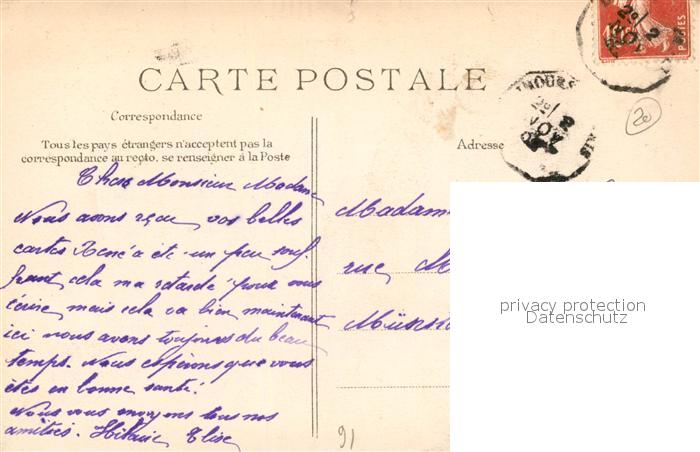 CARTE POSTALE
Correspondance
Tous les pays étrangers n'acceptent pas la
correspondance au recto, se renseigner à la Poste
Adresse
20
Chers Monsieur Madame
Nous avons reçu vos belles
cartes René a étè un peu souf-
frant cela ma retardé pour vous
écrire mais cela va bien maintenant
ici nous avons toujours du beau
temps. Nous espérons que vous
êtes en bonne santé.
Nous vous envoyons tous nos
amitiés. Hilaire Elise
Madam
rue M
91
privacy protection
Datenschutz